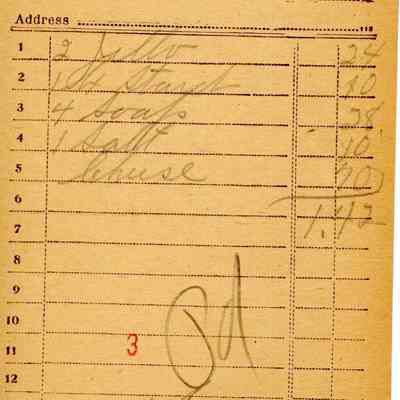 Address
1 2 Jello 24
2 1 Starch 10
3 4 Soaps 28
4 1 Salt 10
5 Chuse 70
6
7 1.42
8
9
10
11 3
12
Pd